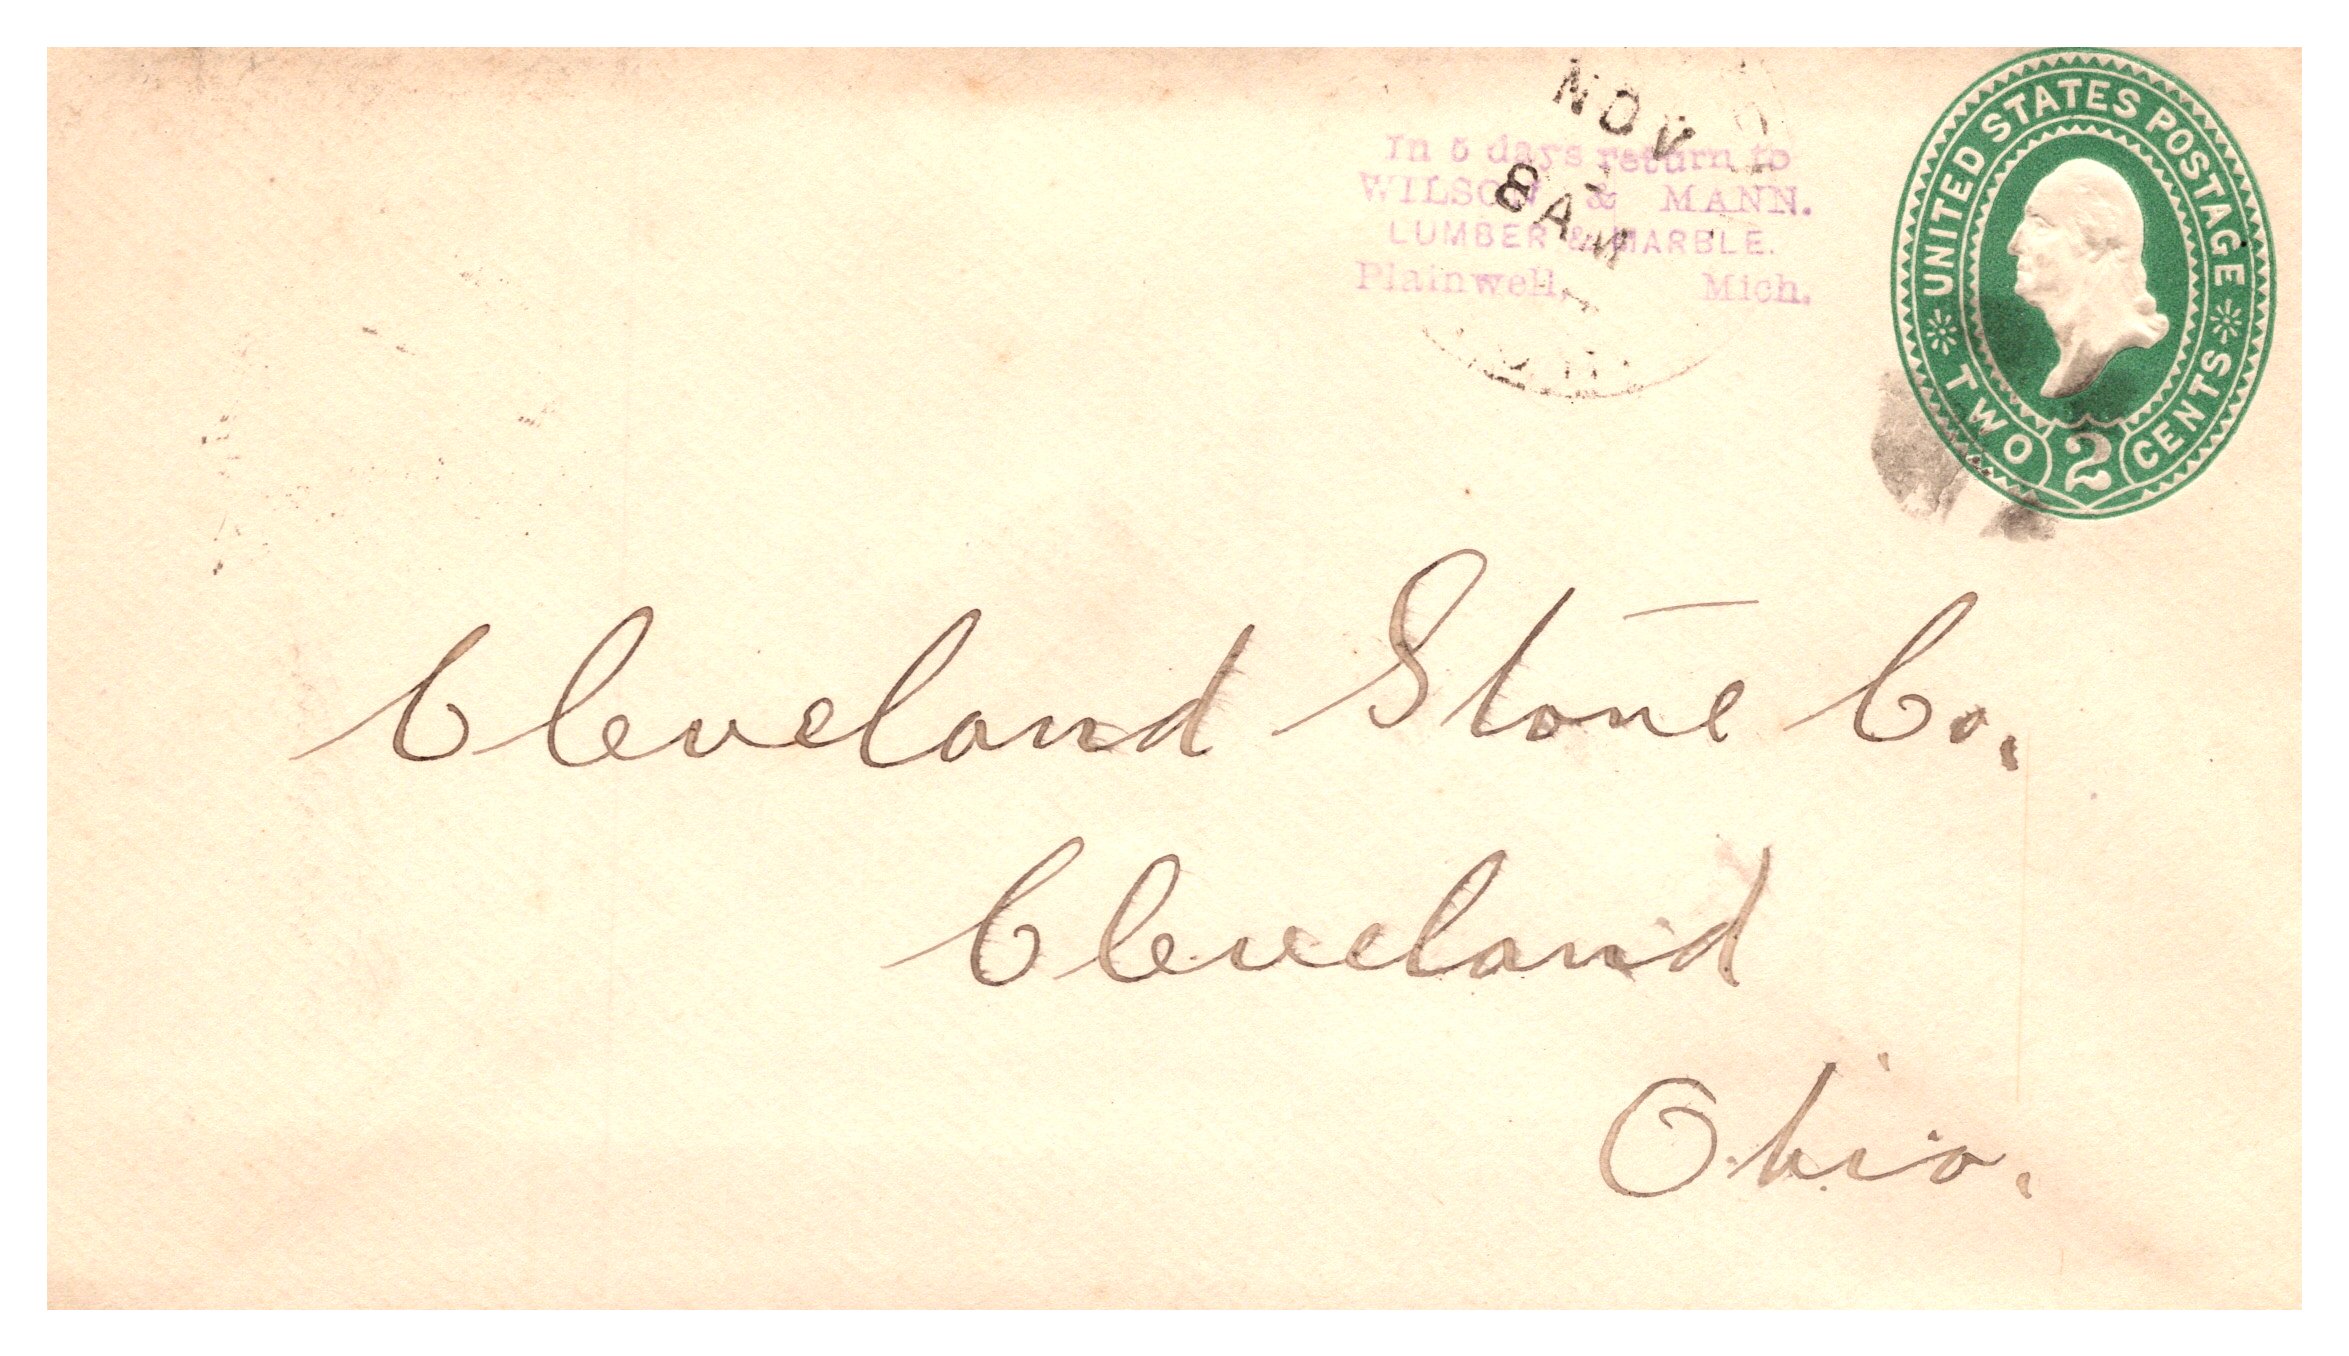 In 5 days return to
WILSON & MANN.
LUMBER & MARBLE.
Plainwell, Mich.
NOV
8 AM
UNITED STATES POSTAGE
TWO 2 CENTS
Cleveland Stone Co.
Cleveland
Ohio.